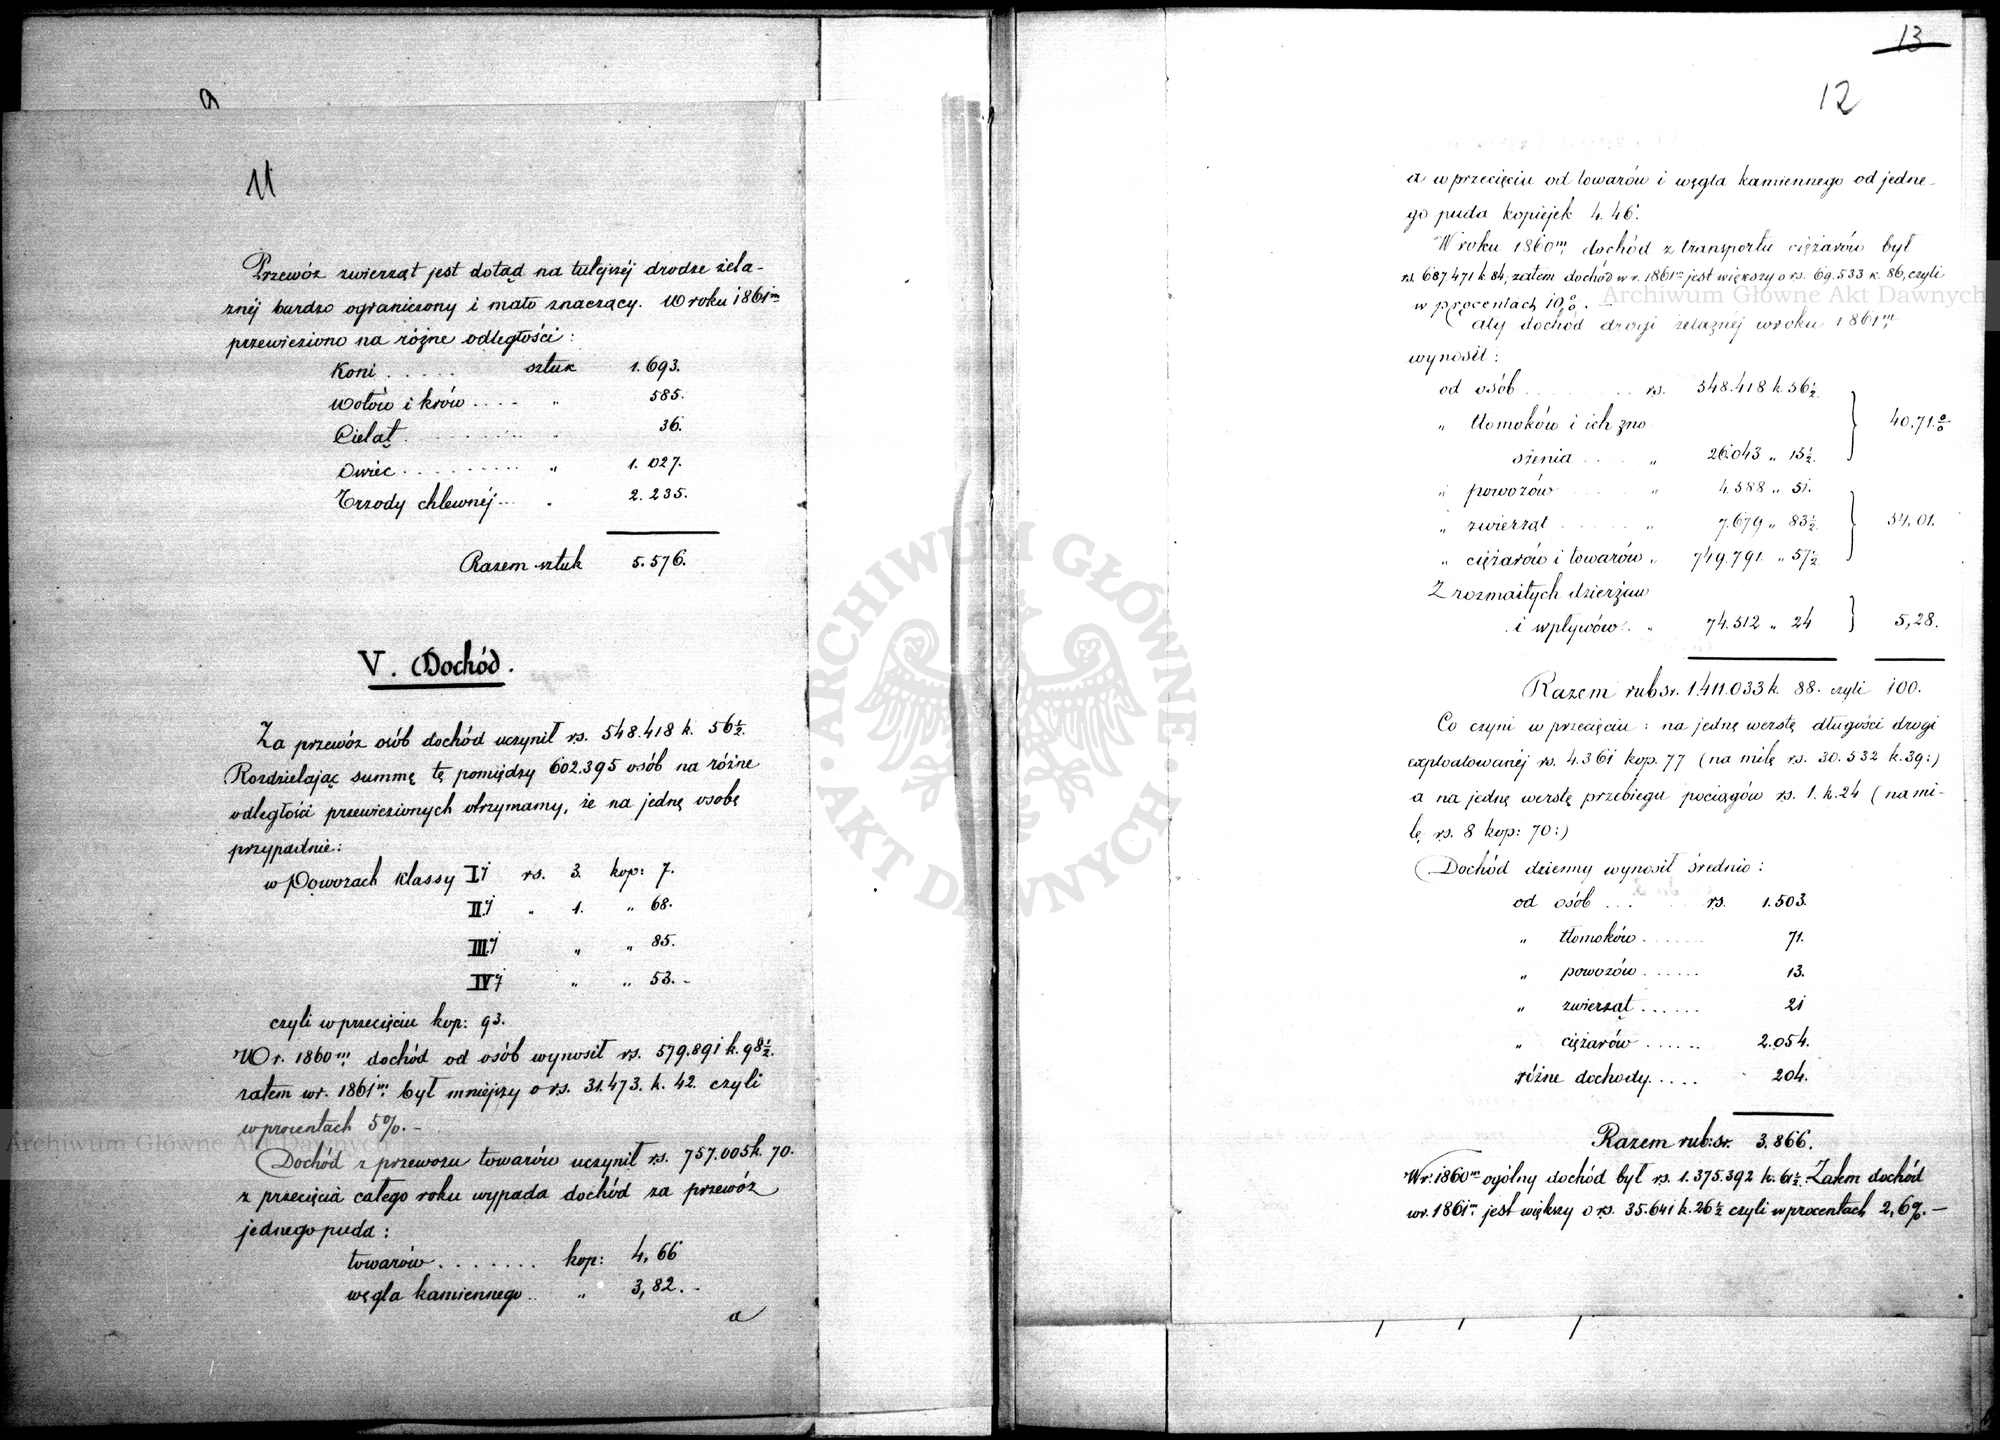 11
Przewóz zwierząt jest dotąd na tutejszéj drodze żela-
znéj bardzo ograniczony i mało znaczący. W roku 1861m
przewieziono na różne odległości:
Koni ..... sztuk 1.693.
Wołów i krów .... " 585.
Cieląt ......... " 36.
Owiec ......... " 1.027.
Trzody chlewnéj ... " 2.235.
Razem sztuk 5.576.
V. Dochód.
Za przewóz osób dochód uczynił rs. 548.418 k. 56½.
Rozdzielając summę tę pomiędzy 602.395 osób na różne
odległości przewiezionych otrzymamy, że na jednę osobę
przypadnie:
w Powozach klassy Ij rs. 3. kop: 7.
IIj " 1. " 68.
IIIj " " 85.
IVj " " 53. -
czyli w przecięciu kop: 93.
W r. 1860m dochód od osób wynosił rs. 579.891 k. 98½.
zatem w r. 1861m był mniejszy o rs. 31.473. k. 42. czyli
w procentach 5%. -
Dochód z przewozu towarów uczynił rs. 757.005 k. 70.
z przecięcia całego roku wypada dochód za przewóz
jednego puda:
towarów ....... kop: 4,66
węgla kamiennego .. " 3,82. -
a
13
12
a w przecięciu od towarów i węgla kamiennego od jedne-
go puda kopiejek 4.46.
W roku 1860m dochód z transportu ciężarów był
rs. 687.471 k. 84, zatem dochód w r. 1861m jest większy o rs. 69.533 k. 86, czyli
w procentach 10%. -
Cały dochód drogi żelaznéj w roku 1861m
wynosił:
od osób ........ rs. 548.418 k. 56½ } 40,71.%
" tłomoków i ich zno
szenia .... " 26.043 " 15½.
" powozów ..... " 4.588 " 51.
" zwierząt ..... " 7.679 " 83½. } 54,01.
" ciężarów i towarów " 749.791. " 57½
Z rozmaitych dzierżaw
i wpływów. " 74.512 " 24 } 5,28.
Razem rub.sr. 1.411.033 k. 88. czyli 100.
Co czyni w przecięciu: na jednę werstę długości drogi
exploatowanéj rs. 4.361 kop. 77 (na milę rs. 30.532 k. 39:)
a na jednę werstę przebiegu pociągów rs. 1. k. 24 (na mi-
lę rs. 8 kop: 70:)
Dochód dzienny wynosił średnio:
od osób ... rs. 1.503.
" tłomoków ....... 71.
" powozów ...... 13.
" zwierząt ...... 21
" ciężarów ...... 2.054.
różne dochody .... 204.
Razem rub:sr. 3.866.
W r. 1860m ogólny dochód był rs. 1.375.392 k. 61½. Zatem dochód
w r. 1861m jest większy o rs. 35.641 k. 26½ czyli w procentach 2,6%. -
Archiwum Główne Akt Dawnych
Archiwum Główne Akt Dawnych
ARCHIWUM GŁÓWNE • AKT DAWNYCH •